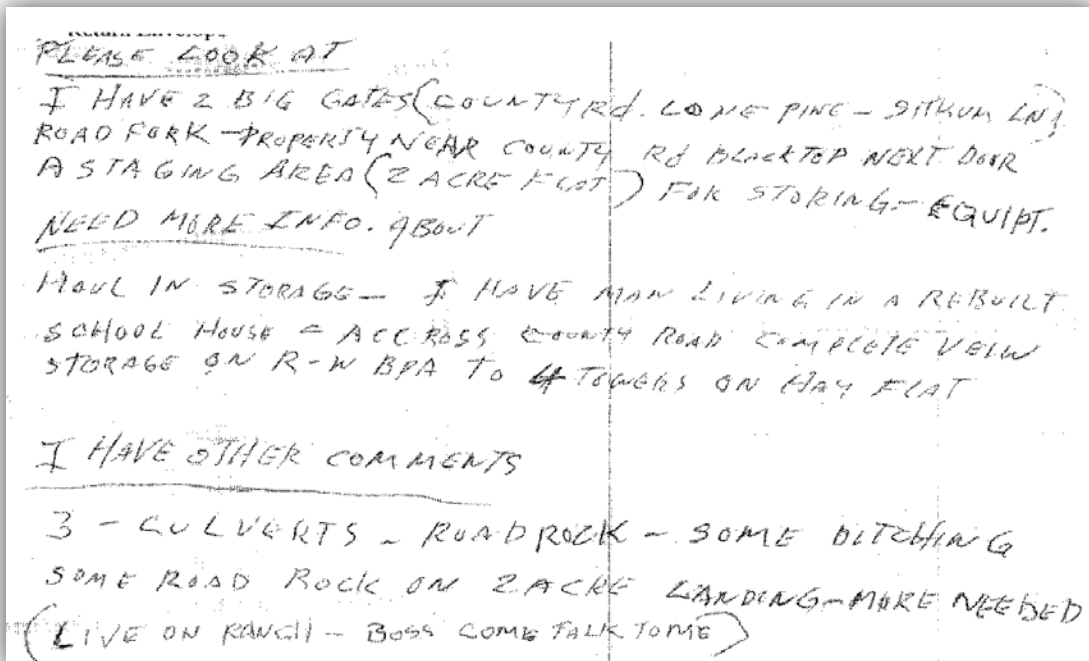 Return Envelope
PLEASE LOOK AT
I HAVE 2 BIG GATES (COUNTY Rd. LONE PINE - SITKUM LN)
ROAD FORK - PROPERTY NEAR COUNTY Rd BLACKTOP NEXT DOOR
A STAGING AREA (2 ACRE FLAT) FOR STORING - EQUIPT.
NEED MORE INFO. ABOUT
HAUL IN STORAGE - I HAVE MAN LIVING IN A REBUILT
SCHOOL HOUSE = ACCROSS COUNTY ROAD COMPLETE VEIW
STORAGE ON R-W BPA TO 4 TOWERS ON HAY FLAT
I HAVE OTHER COMMENTS
3 - CULVERTS - ROAD ROCK - SOME DITCHING
SOME ROAD ROCK ON 2 ACRE LANDING - MORE NEEDED
(LIVE ON RANCH - BOSS COME TALK TO ME)